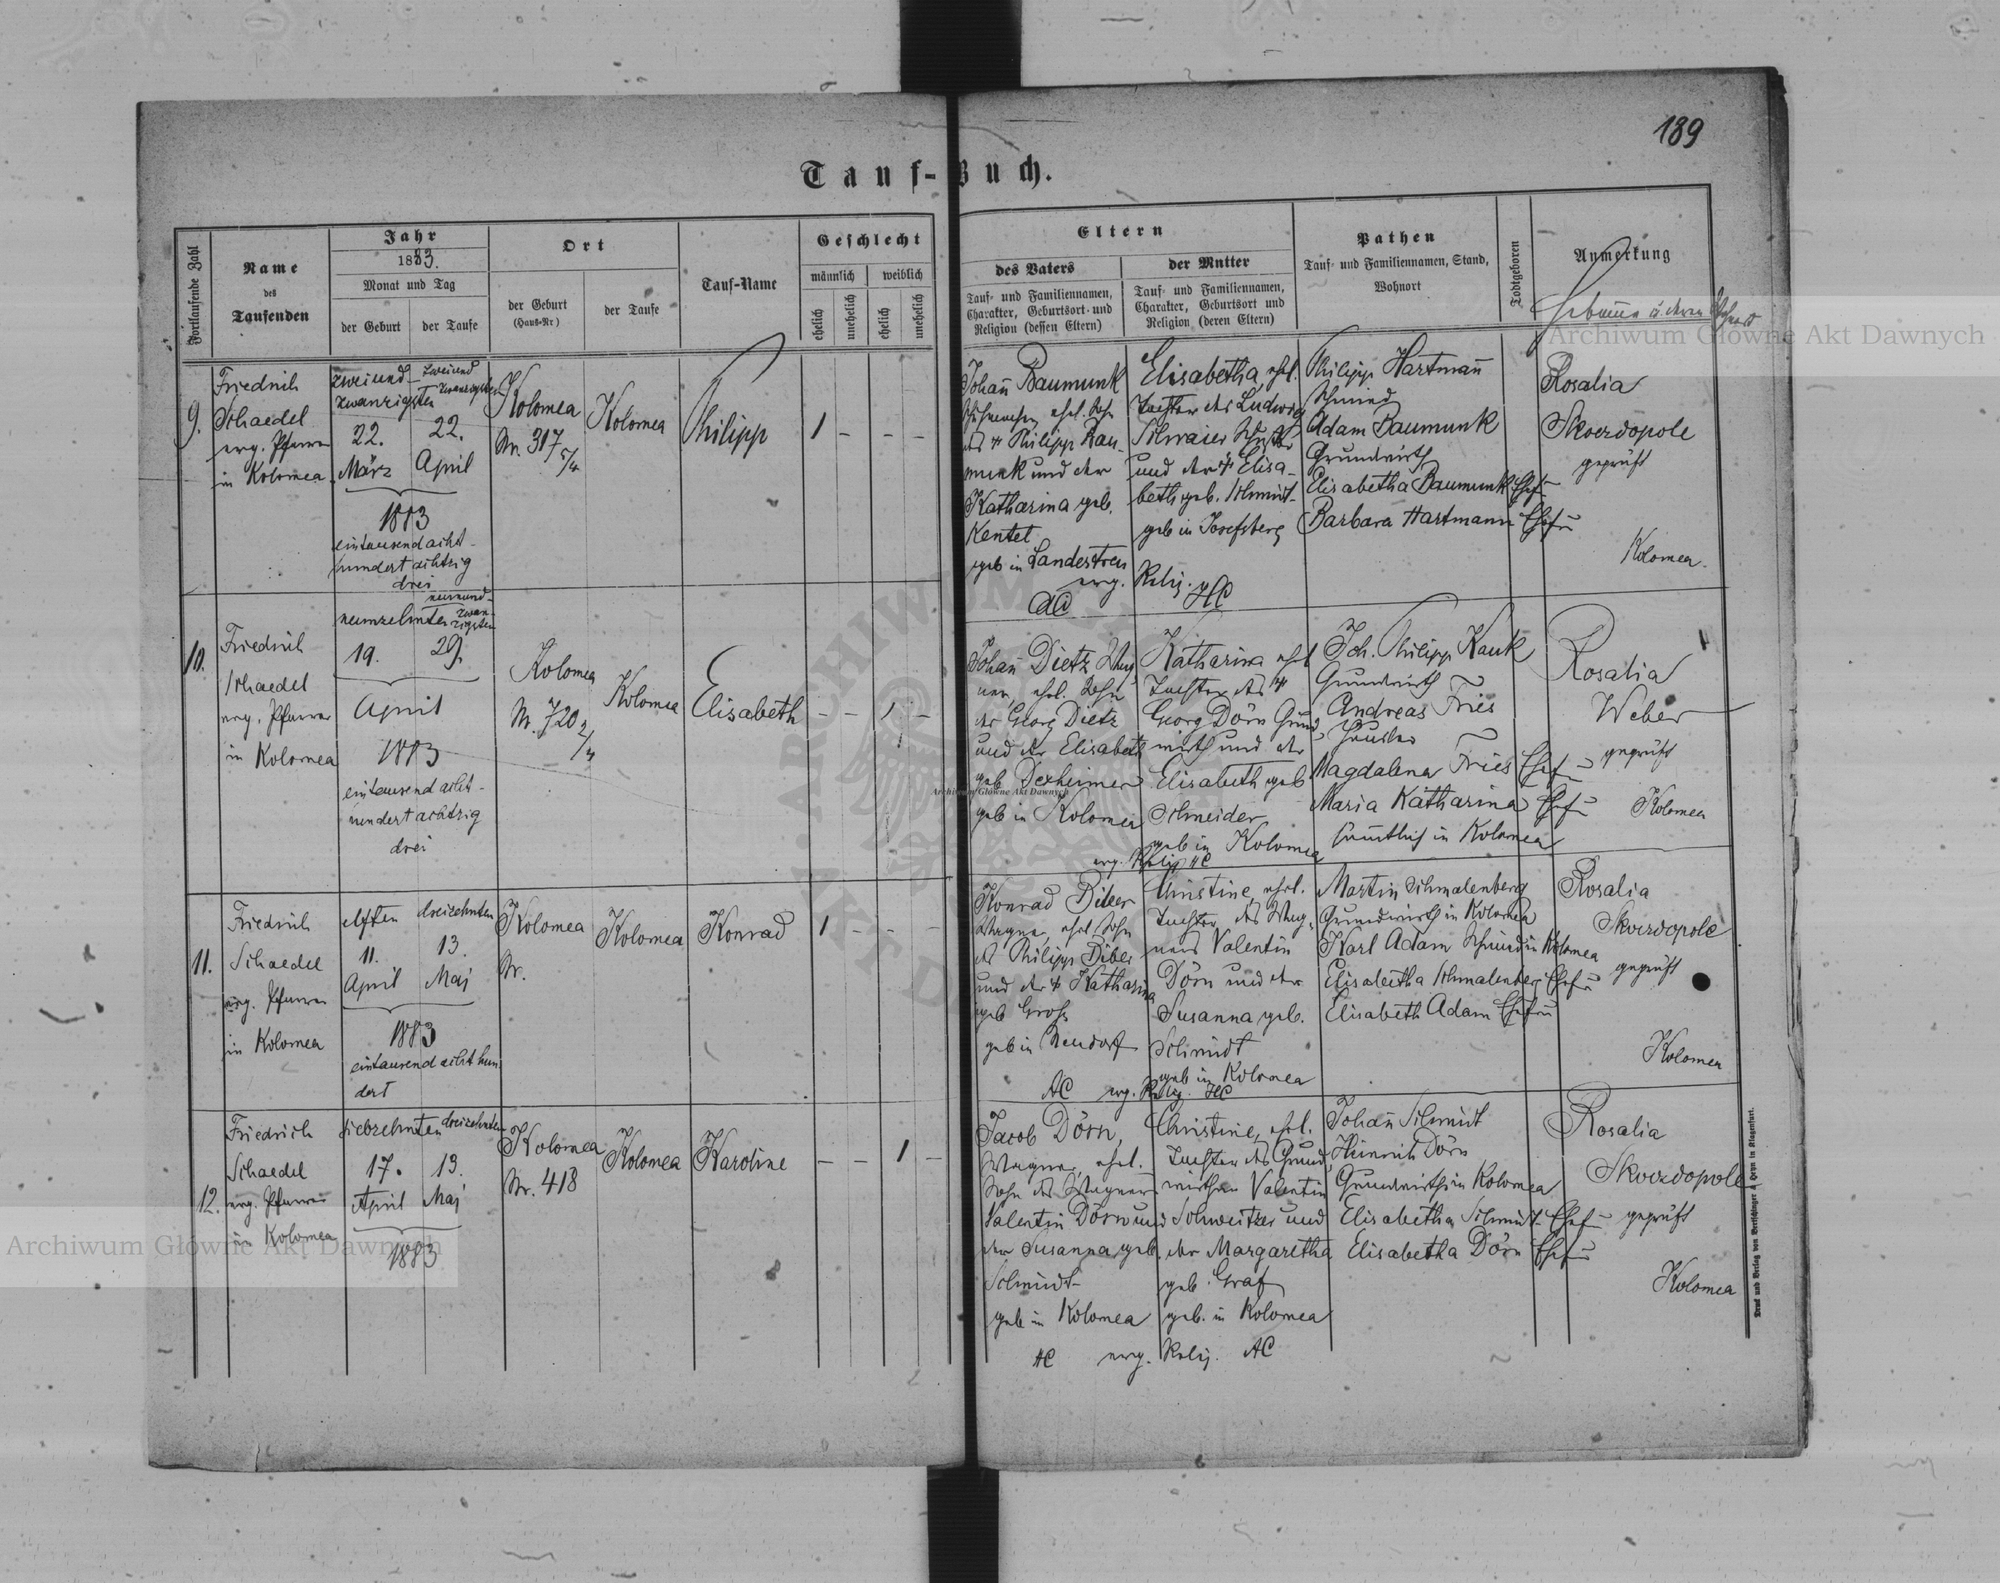 189
Tauf-Buch.
Fortlaufende Zahl
Name
des
Taufenden
Jahr
1883.
Monat und Tag
der Geburt
der Taufe
Ort
der Geburt
(Haus-Nr.)
der Taufe
Tauf-Name
Geschlecht
männlich
weiblich
ehelich
unehelich
ehelich
unehelich
Eltern
des Vaters
Tauf- und Familiennamen,
Charakter, Geburtsort und
Religion (dessen Eltern)
der Mutter
Tauf- und Familiennamen,
Charakter, Geburtsort und
Religion (deren Eltern)
Pathen
Tauf- und Familiennamen, Stand,
Wohnort
Todtgeboren
Anmerkung
Archiwum Główne Akt Dawnych
9.
Friedrich
Schaedel
evg. Pfarrer
in Kolomea
zweiund-
zwanzigsten
22.
März
zweiund
zwanzigsten
22.
April
1883
eintausend acht-
hundert achtzig
drei
Kolomea
Nr. 317 5/4
Kolomea
Philipp
1 - - -
Johañ Baumunk
ehl. Sohn
des Philipp Bau-
munk und der
Katharina geb.
Kentel
geb in Landestreu
AC
Elisabetha, ehl.
Tochter des Ludwig
und der Elisa-
beth geb. Schmidt
geb in Josefsberg
evg. Relig. HC
Philipp Hartmañ
Schmied
Adam Baumunk
Grundwirth
Elisabetha Baumunk Ehef
Barbara Hartmann Ehefr
Rosalia
Skorzdopole
geprüft
Kolomea.
10.
Friedrich
Schaedel
evg. Pfarrer
in Kolomea
neunzehnten
19.
neunund-
zwan-
zigsten
29.
April
1883
eintausend acht-
hundert achtzig
drei
Kolomea
Nr. 720 2/4
Kolomea
Elisabeth
- - 1 -
Johañ Dietz Wag
ner, ehl. Sohn
des Georg Dietz
und der Elisabeth
geb Dexheimer
geb in Kolomea
Katharina ehl
Tochter des
Georg Dörn Grund
wirth und der
Elisabeth geb
Schneider
geb in Kolomea
evg. Relig HC
Joh. Philipp Kauk
Grundwirth
Andreas Fries
Häusler
Magdalena Fries Ehef
Maria Katharina Ehef
sämtlich in Kolomea
Rosalia
Weber
geprüft
Kolomea
Archiwum Główne Akt Dawnych
11.
Friedrich
Schaedel
evg. Pfarrer
in Kolomea
elften
11.
April
dreizehnten
13.
Mai
1883
eintausend acht hun
dert
Kolomea
Nr.
Kolomea
Konrad
1 - - -
Konrad Biber
Wagner, ehl Sohn
des Philipp Biber
und der Katharina
geb Groß
geb in Neudorf
AC
Christine, ehl.
Tochter des Wag-
ners Valentin
Dörn und der
Susanna geb.
Schmidt
geb in Kolomea
evg. Relig. HC
Martin Schmalenberg
Grundwirth in Kolomea
Karl Adam Schmied in Kolomea
Elisabetha Schmalenberg Ehef
Elisabeth Adam Ehefr
Rosalia
Skorzdopole
geprüft
Kolomea
12.
Friedrich
Schaedel
evg. Pfarrer
in Kolomea
siebzehnten
17.
April
dreizehnten
13.
Mai
1883
Kolomea
Nr. 418
Kolomea
Karoline
- - 1 -
Jacob Dörn,
Wagner, ehl.
Sohn des Wagners
Valentin Dörn und
der Susanna geb.
Schmidt
geb in Kolomea
AC
Christine, ehl.
Tochter des Grund
wirthen Valentin
Schweitzer und
der Margaretha
geb. Graf
geb. in Kolomea
evg. Relig. AC
Johañ Schmidt
Heinrich Dörn
Grundwirthe in Kolomea
Elisabetha Schmidt Ehef
Elisabetha Dörn Ehef
Rosalia
Skorzdopole
geprüft
Kolomea
Archiwum Główne Akt Dawnych